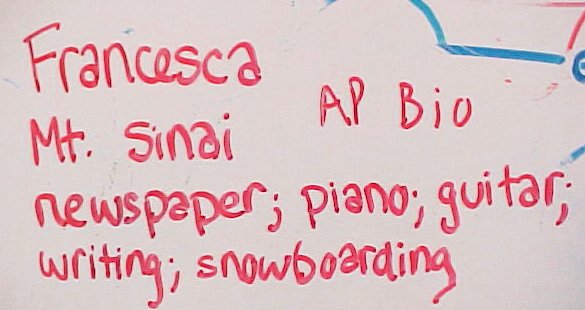 Francesca
AP Bio
Mt. Sinai
newspaper; piano; guitar;
writing; snowboarding